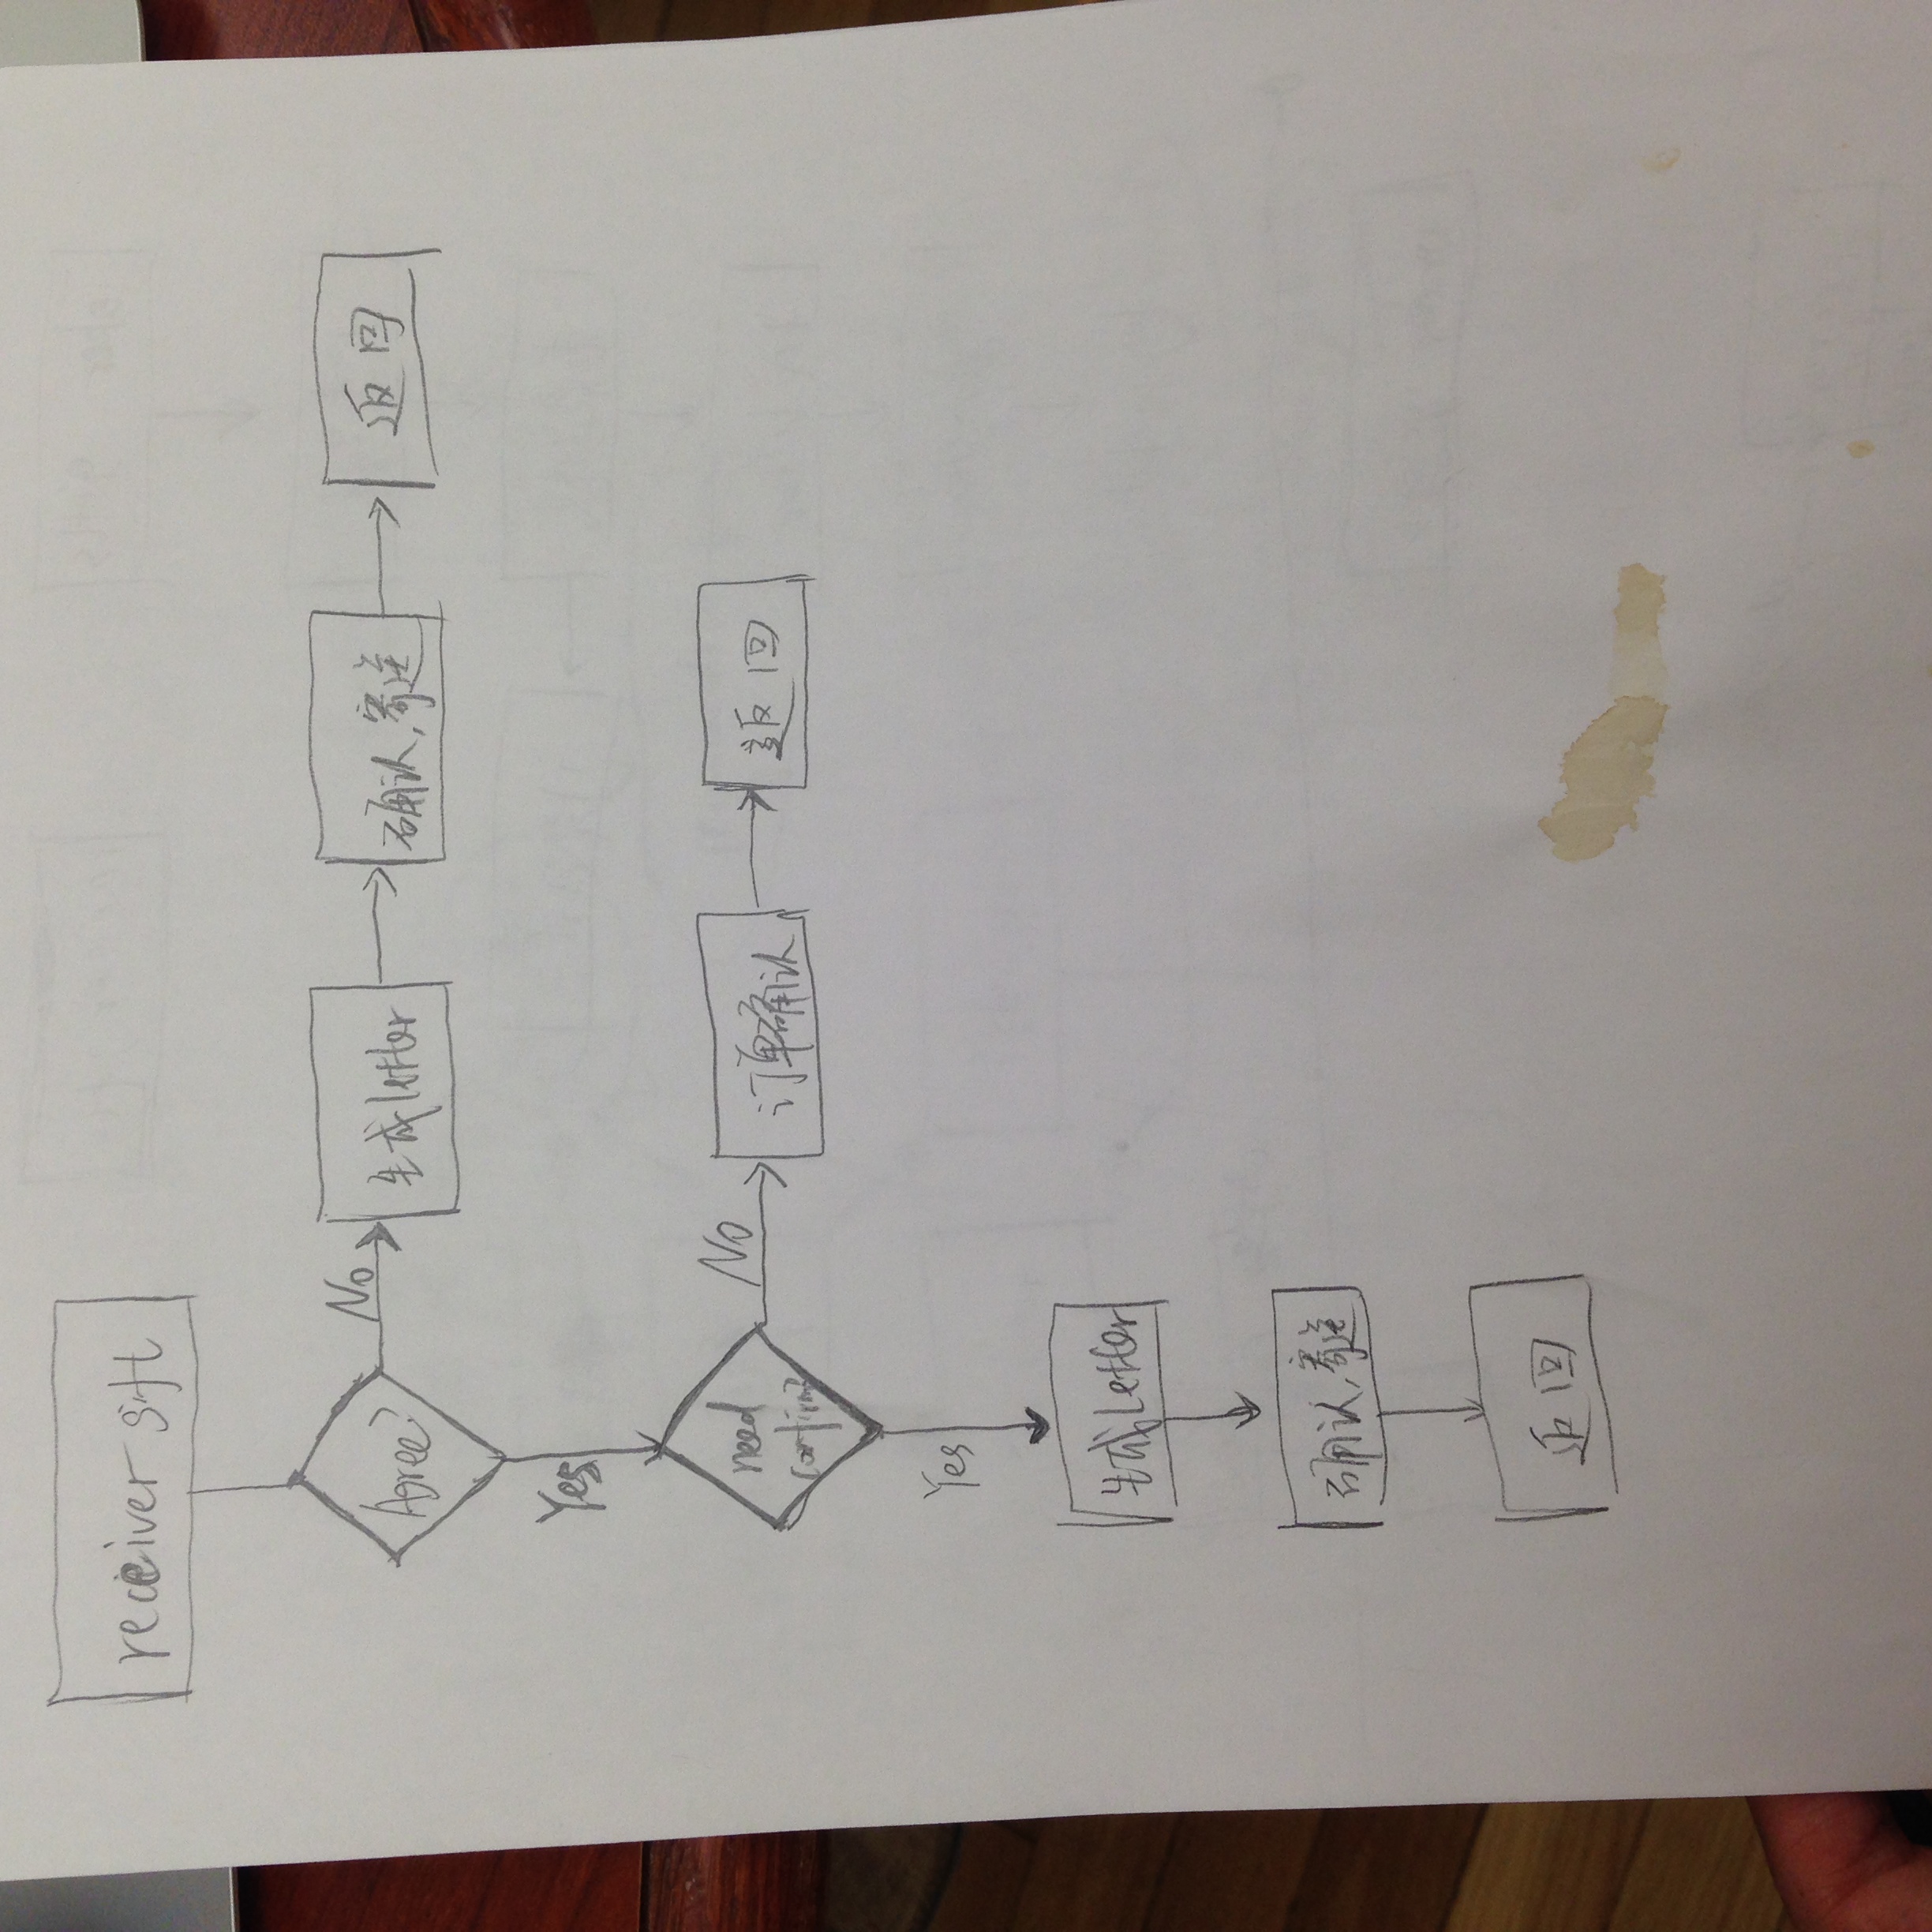 receiver gift
Agree?
No
生成letter
确认,寄送
返回
Yes
need
confirm?
No
订单确认
返回
Yes
生成letter
确认,寄送
返回